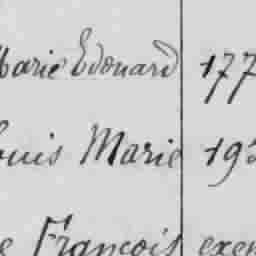 Marie Edouard 177
Louis Marie 193
e François exem